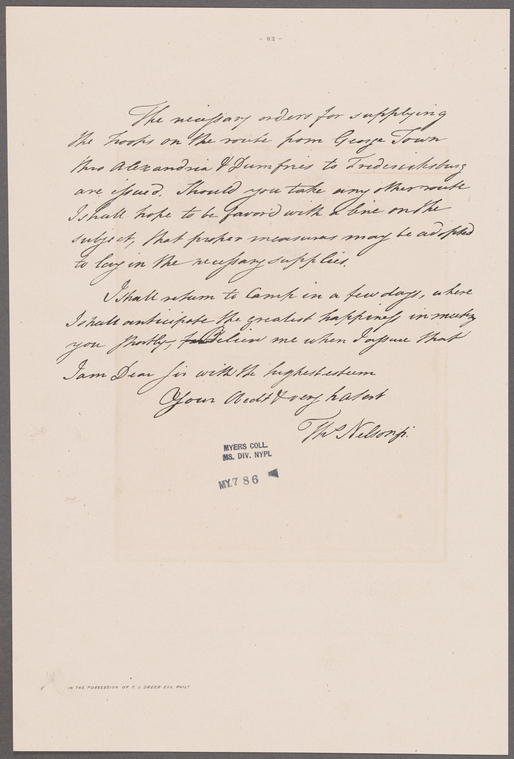 - 82 -
The necessary orders for supplying
the troops on the route from George Town
thro Alexandria & Dumfries to Fredericksburg
are issued. Should you take any other route
I shall hope to be favord with a line on the
subject, that proper measures may be adopted
to lay in the necessary supplies.
I shall return to Camp in a few days, where
I shall anticipate the greatest happiness in meeting
you shortly, believe me when I assure that
I am Dear Sir with the highest esteem
Your Obedt & very hble Servt
Ths Nelson jr.
MYERS COLL.
MS. DIV. NYPL
MY. 786
IN THE POSSESSION OF F. J. DREER ESQ. PHILA